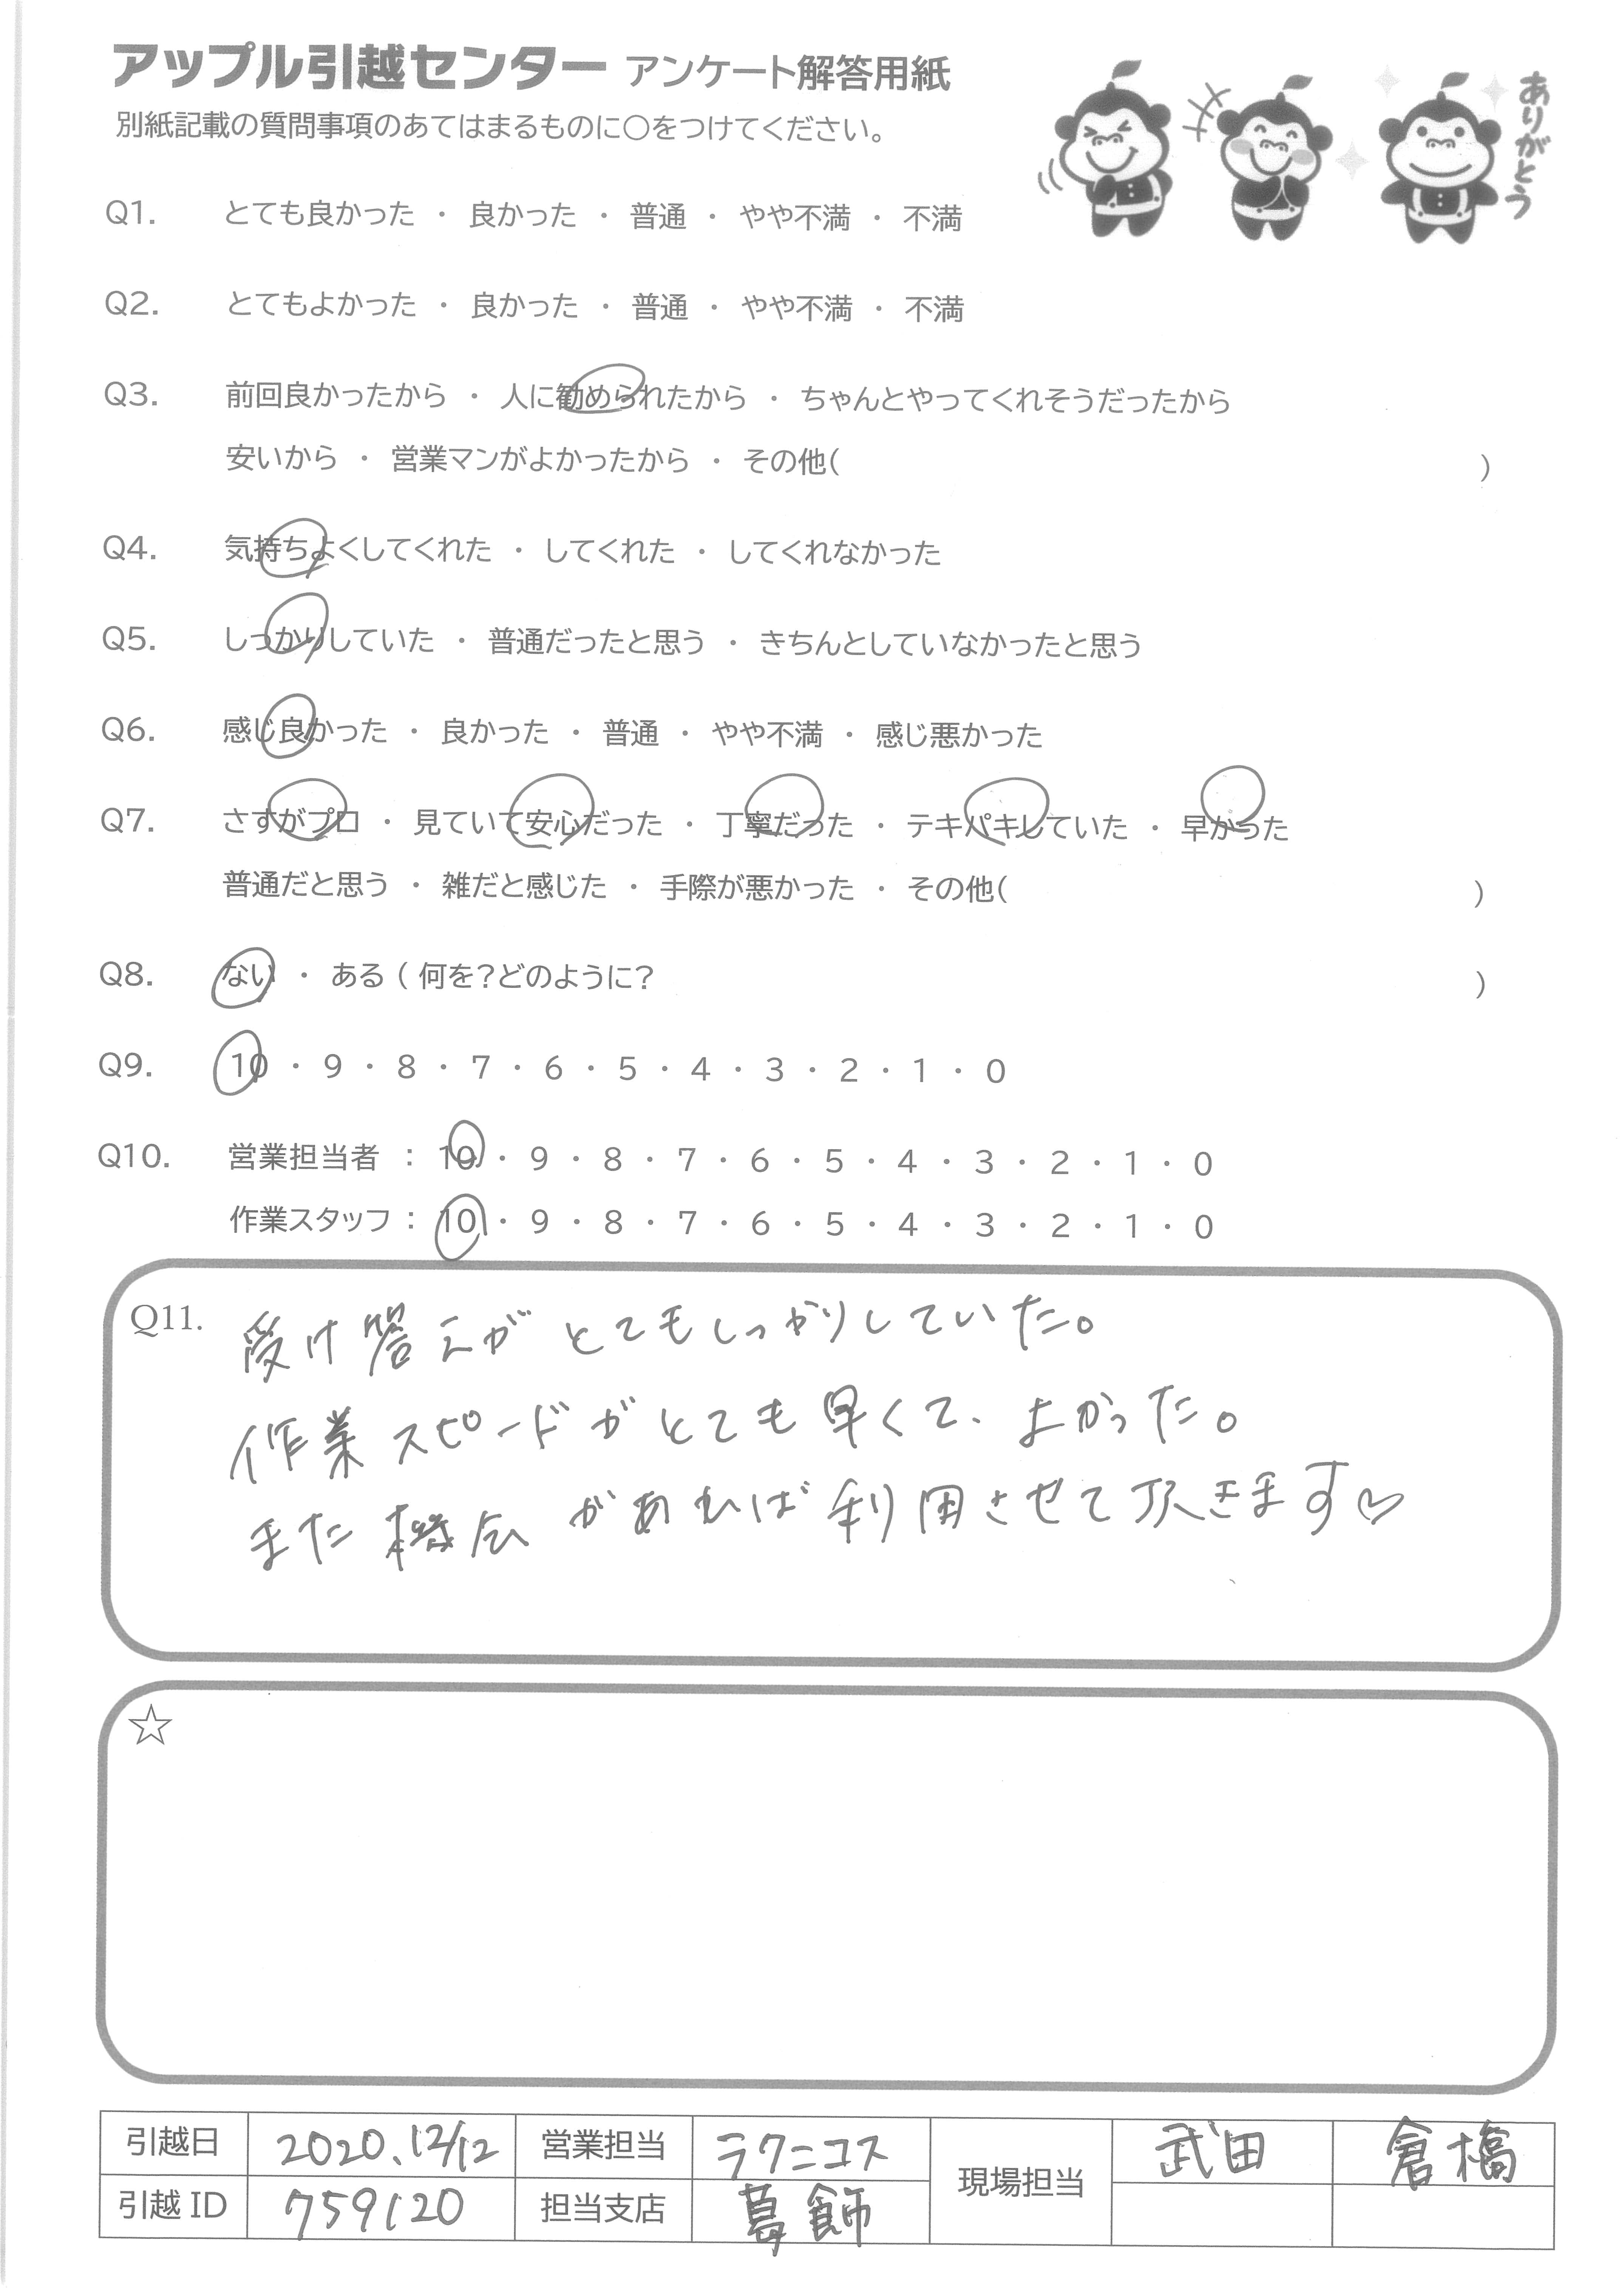 アップル引越センター アンケート解答用紙
別紙記載の質問事項のあてはまるものに○をつけてください。
ありがとう
Q1. とても良かった ・ 良かった ・ 普通 ・ やや不満 ・ 不満
Q2. とてもよかった ・ 良かった ・ 普通 ・ やや不満 ・ 不満
Q3. 前回良かったから ・ 人に勧められたから ・ ちゃんとやってくれそうだったから
安いから ・ 営業マンがよかったから ・ その他( )
Q4. 気持ちよくしてくれた ・ してくれた ・ してくれなかった
Q5. しっかりしていた ・ 普通だったと思う ・ きちんとしていなかったと思う
Q6. 感じ良かった ・ 良かった ・ 普通 ・ やや不満 ・ 感じ悪かった
Q7. さすがプロ ・ 見ていて安心だった ・ 丁寧だった ・ テキパキしていた ・ 早かった
普通だと思う ・ 雑だと感じた ・ 手際が悪かった ・ その他( )
Q8. ない ・ ある ( 何を?どのように? )
Q9. 10 ・ 9 ・ 8 ・ 7 ・ 6 ・ 5 ・ 4 ・ 3 ・ 2 ・ 1 ・ 0
Q10. 営業担当者 : 10 ・ 9 ・ 8 ・ 7 ・ 6 ・ 5 ・ 4 ・ 3 ・ 2 ・ 1 ・ 0
作業スタッフ : 10 ・ 9 ・ 8 ・ 7 ・ 6 ・ 5 ・ 4 ・ 3 ・ 2 ・ 1 ・ 0
Q11. 受け答えがとてもしっかりしていた。
作業スピードがとても早くて、よかった。
また機会があれば利用させて頂きます♡
☆
引越日 2020.12/12 営業担当 ラクニコス 現場担当 武田 倉橋
引越 ID 759120 担当支店 葛飾